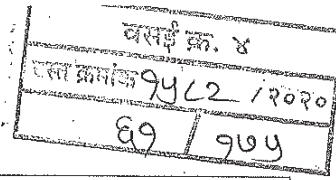 वसई क्र. ४
दस्त क्रमांक १५८२ / २०२०
६१ / १७५